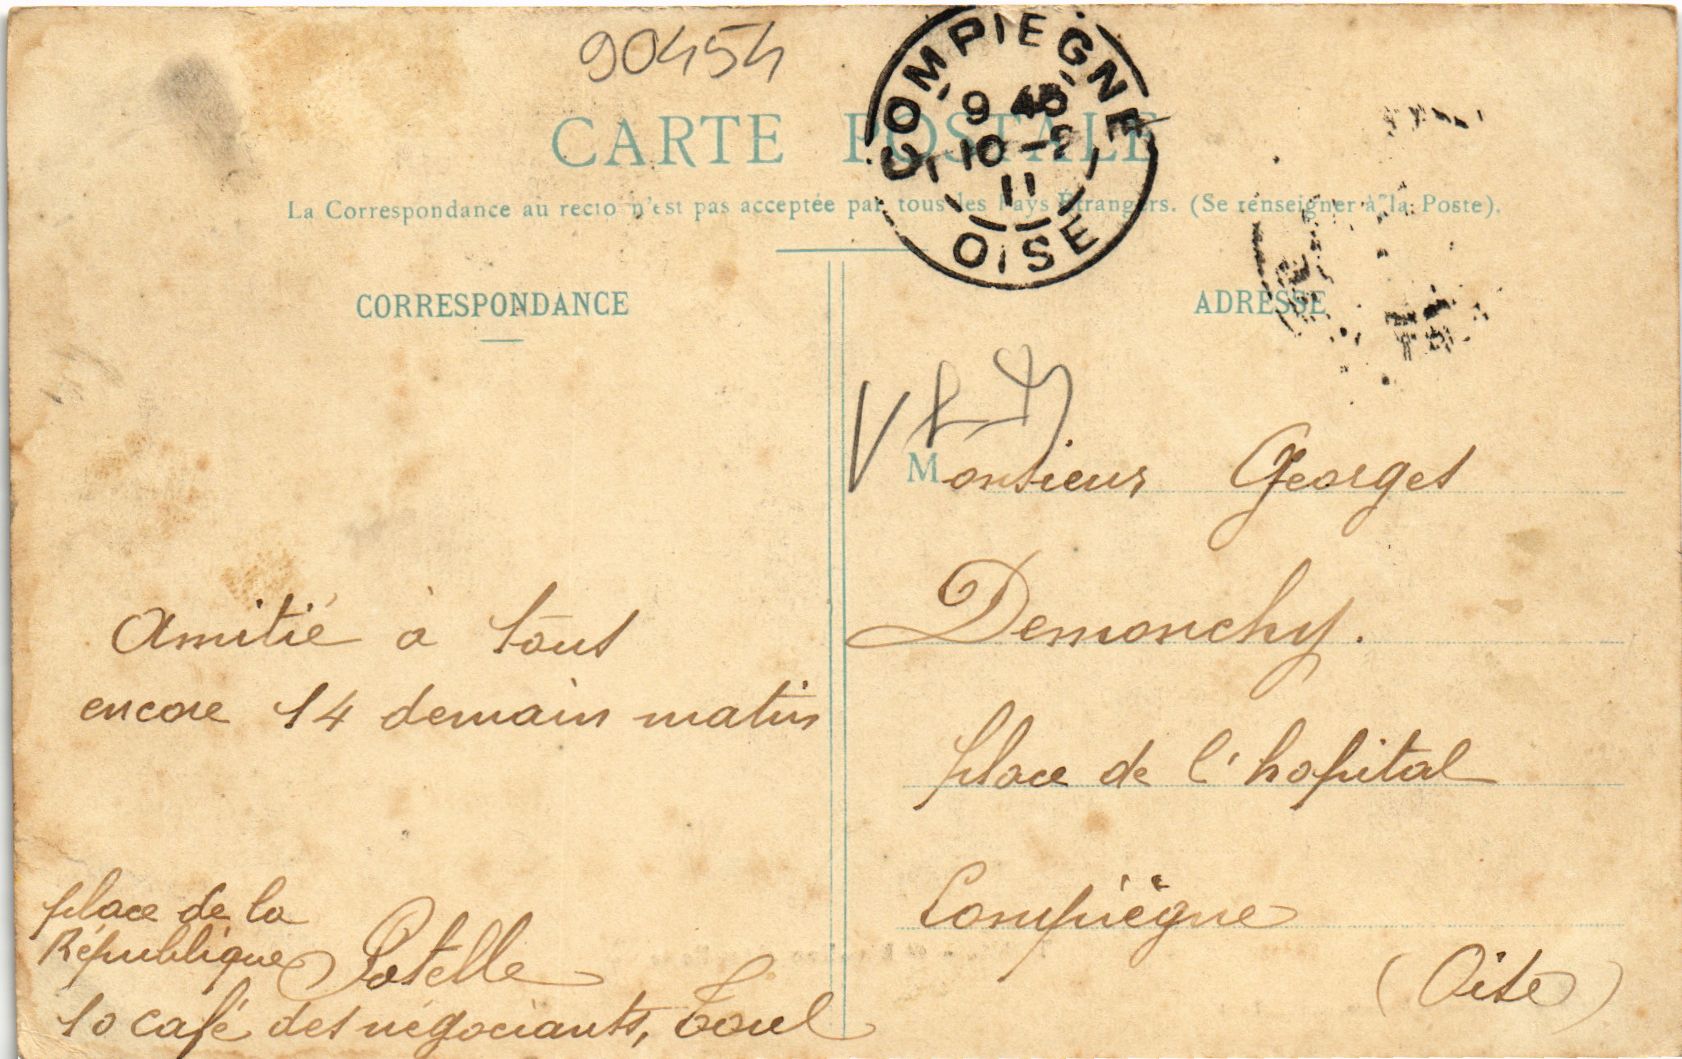 90454
CARTE POSTALE
COMPIEGNE
9 45
10 -2
11
OISE
La Correspondance au recto n'est pas acceptée par tous les Pays Étrangers. (Se renseigner à la Poste).
CORRESPONDANCE
Amitié à tous
encore 14 demain matin
place de la
République Potelle
10 café des négociants, Toul
ADRESSE
Monsieur Georges
Demonchy.
place de l'hopital
Compiègne
(Oise)